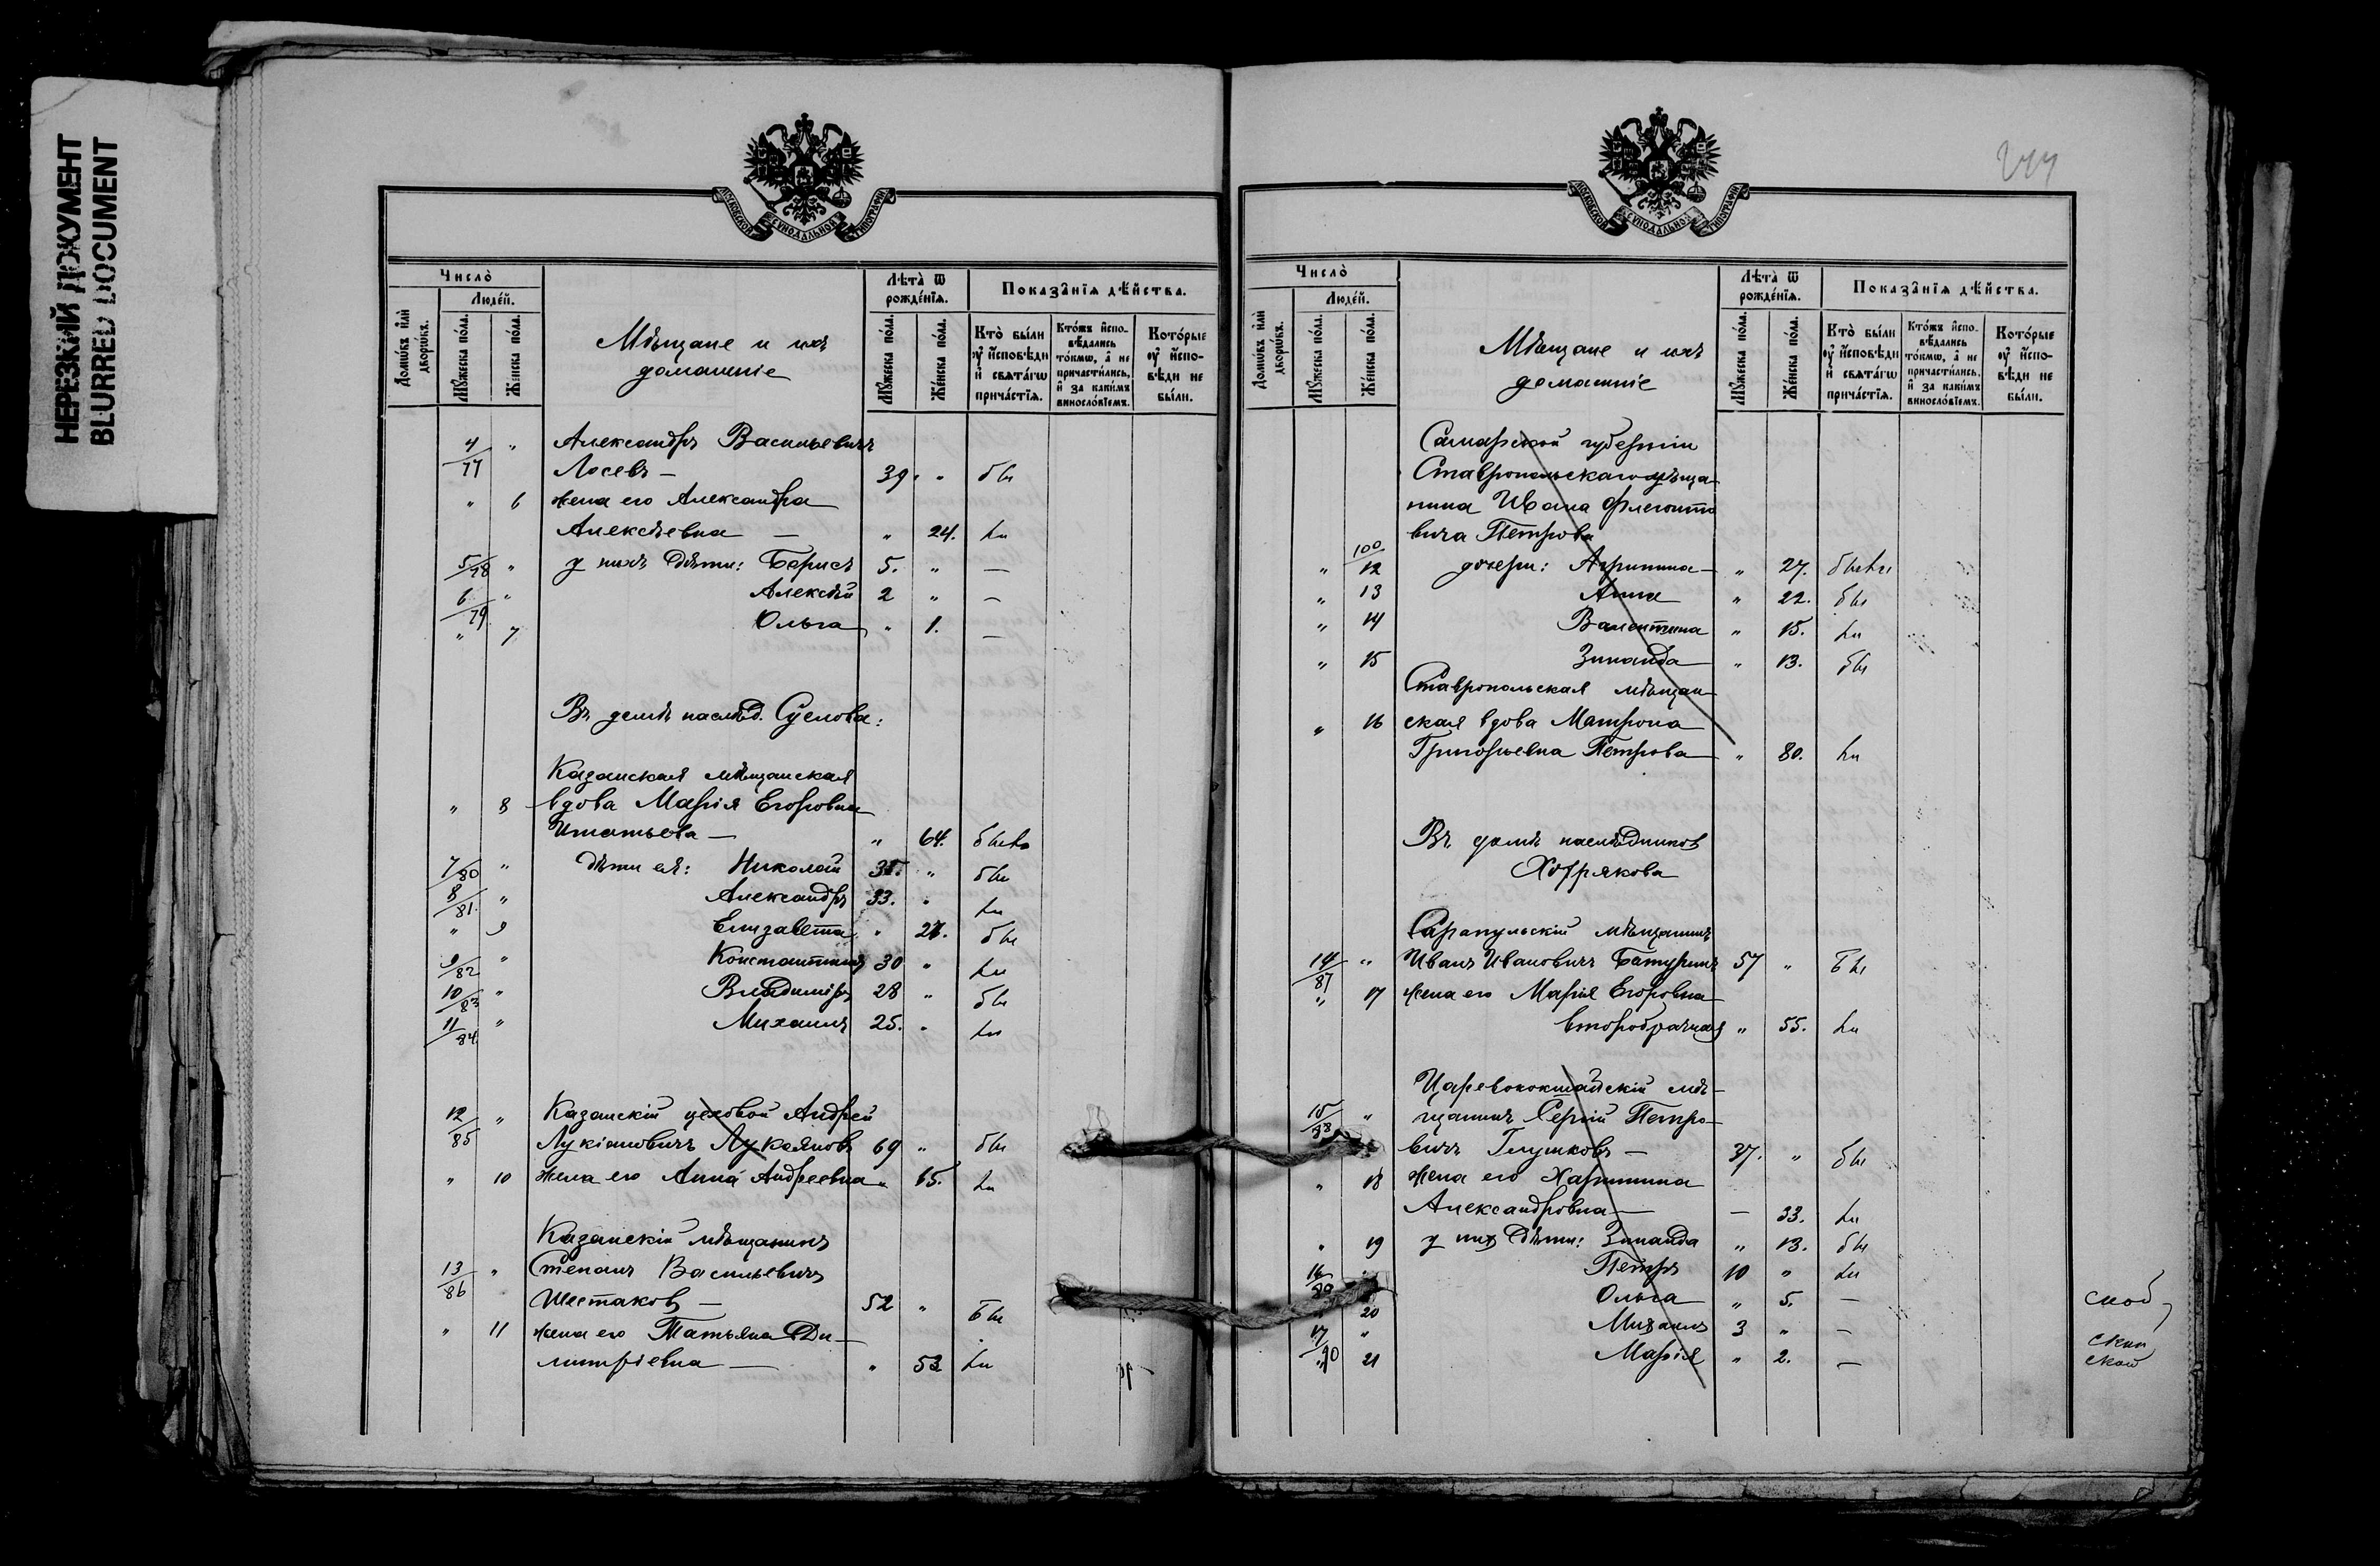 НЕРЕЗКИЙ ДОКУМЕНТ
BLURRED DOCUMENT
МОСКОВСКОЙ СѴНОДАЛЬНОЙ ТИПОГРАФІИ
Число̀
Людей.
Домѡвъ и҆лѝ дворѡвъ.
Мꙋ́жеска по́ла.
Же́нска по́ла.
Мѣщане и ихъ
домашніе
Лѣта̀ ѿ рожде́нїѧ.
Мꙋ́жеска по́ла.
Же́нска по́ла.
Показа̑нїѧ дѣ́йства.
Кто̀ бы́ли ᲂу҆ и҆сповѣди и҆ свѧта́гѡ прича́стїѧ.
Кто́жъ и҆сповѣдались то́кмѡ, а҆ не причасти́лись, и҆ за каки́мъ винословїемъ.
Кото́рые ᲂу҆ и҆сповѣди не бы́ли.
4/77 " Александръ Васильевичъ
Лосевъ — 39. " бы
" 6 жена его Александра
Алексѣевна — " 24. ли
5/78 " у нихъ дѣти: Борисъ 5. " —
6/79 " Алексѣй 2 " —
" 7 Ольга " 1. —
Въ домѣ наслѣд. Суслова:
Казанская мѣщанская
" 8 вдова Марія Егоровна
Игнатьева — " 64. была
7/80 " дѣти ея: Николай 35. " бы
8/81. " Александръ 33. " ли
" 9 Елизавета " 27. бы
9/82 " Константинъ 30 " ли
10/83 " Владиміръ 28 " бы
11/84 " Михаилъ 25. " ли
12/85 " Казанскій цеховой Андрей
Лукіановичъ Лукояновъ 69 " бы
" 10 жена его Анна Андреевна " 65. ли
Казанскій мѣщанинъ
13/86 " Степанъ Васильевичъ
Шестаковъ — 52 " бы
" 11 жена его Татьяна Ди-
митріевна — " 52 ли
МОСКОВСКОЙ СѴНОДАЛЬНОЙ ТИПОГРАФІИ
Число̀
Людей.
Домѡвъ и҆лѝ дворѡвъ.
Мꙋ́жеска по́ла.
Же́нска по́ла.
Мѣщане и ихъ
домашніе
Лѣта̀ ѿ рожде́нїѧ.
Мꙋ́жеска по́ла.
Же́нска по́ла.
Показа̑нїѧ дѣ́йства.
Кто̀ бы́ли ᲂу҆ и҆сповѣди и҆ свѧта́гѡ прича́стїѧ.
Кто́жъ и҆сповѣдались то́кмѡ, а҆ не причасти́лись, и҆ за каки́мъ винословїемъ.
Кото́рые ᲂу҆ и҆сповѣди не бы́ли.
Самарской губерніи
Ставропольскаго мѣща-
нина Ивана Флегонто
вича Петрова
" 100/12 дочери: Агрипина — " 27. были
" 13 Анна " 22. бы
" 14 Валентина " 15. ли
" 15 Зинаида " 13. бы
Ставропольская мѣщан-
" 16 ская вдова Матрона
Григорьевна Петрова " 80. ли
Въ домѣ наслѣдниковъ
Хохрякова
Сарапульскій мѣщанинъ
14/87 " Иванъ Ивановичъ Батуринъ 57 " бы
" 17 жена его Марія Егоровна
второбрачная " 55. ли
Царевококшайскій мѣ-
15/88 " щанинъ Сергій Петро-
вичъ Глушковъ — 37. " бы
" 18 жена его Харитина
Александровна — — 33. ли
" 19 у нихъ дѣти: Зинаида " 13. бы
16/89 " Петръ 10 " ли
" 20 Ольга " 5. —
17/90 " Михаилъ 3 " —
" 21 Марія " 2. —